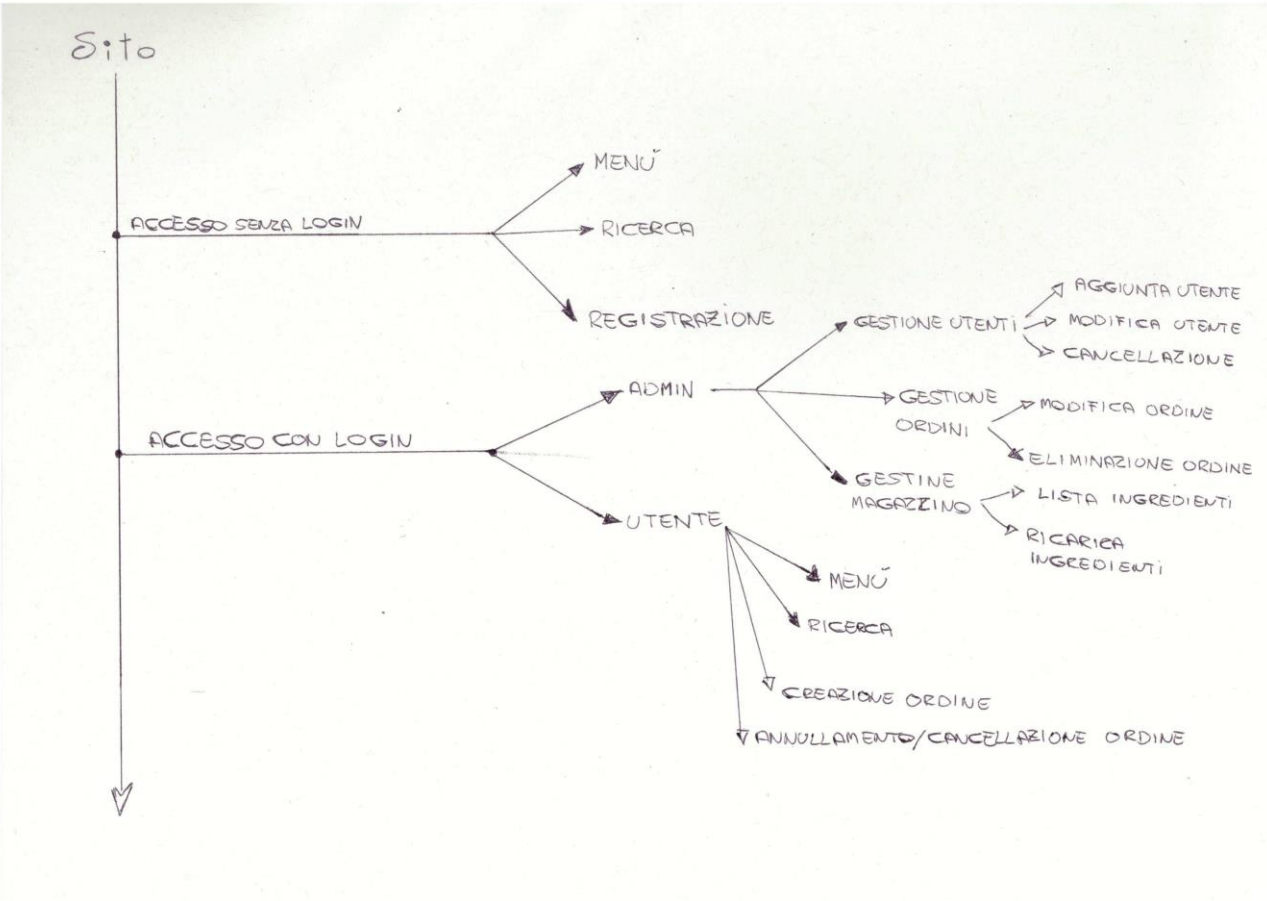 Sito
MENÙ
ACCESSO SENZA LOGIN
RICERCA
REGISTRAZIONE
ACCESSO CON LOGIN
ADMIN
GESTIONE UTENTI
AGGIUNTA UTENTE
MODIFICA UTENTE
CANCELLAZIONE
GESTIONE
ORDINI
MODIFICA ORDINE
ELIMINAZIONE ORDINE
GESTINE
MAGAZZINO
LISTA INGREDIENTI
RICARICA
INGREDIENTI
UTENTE
MENÙ
RICERCA
CREAZIONE ORDINE
ANNULLAMENTO/CANCELLAZIONE ORDINE